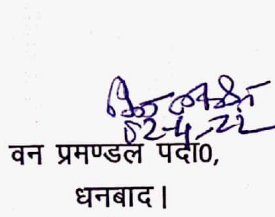 02-4-22
वन प्रमण्डल पदा0,
धनबाद।